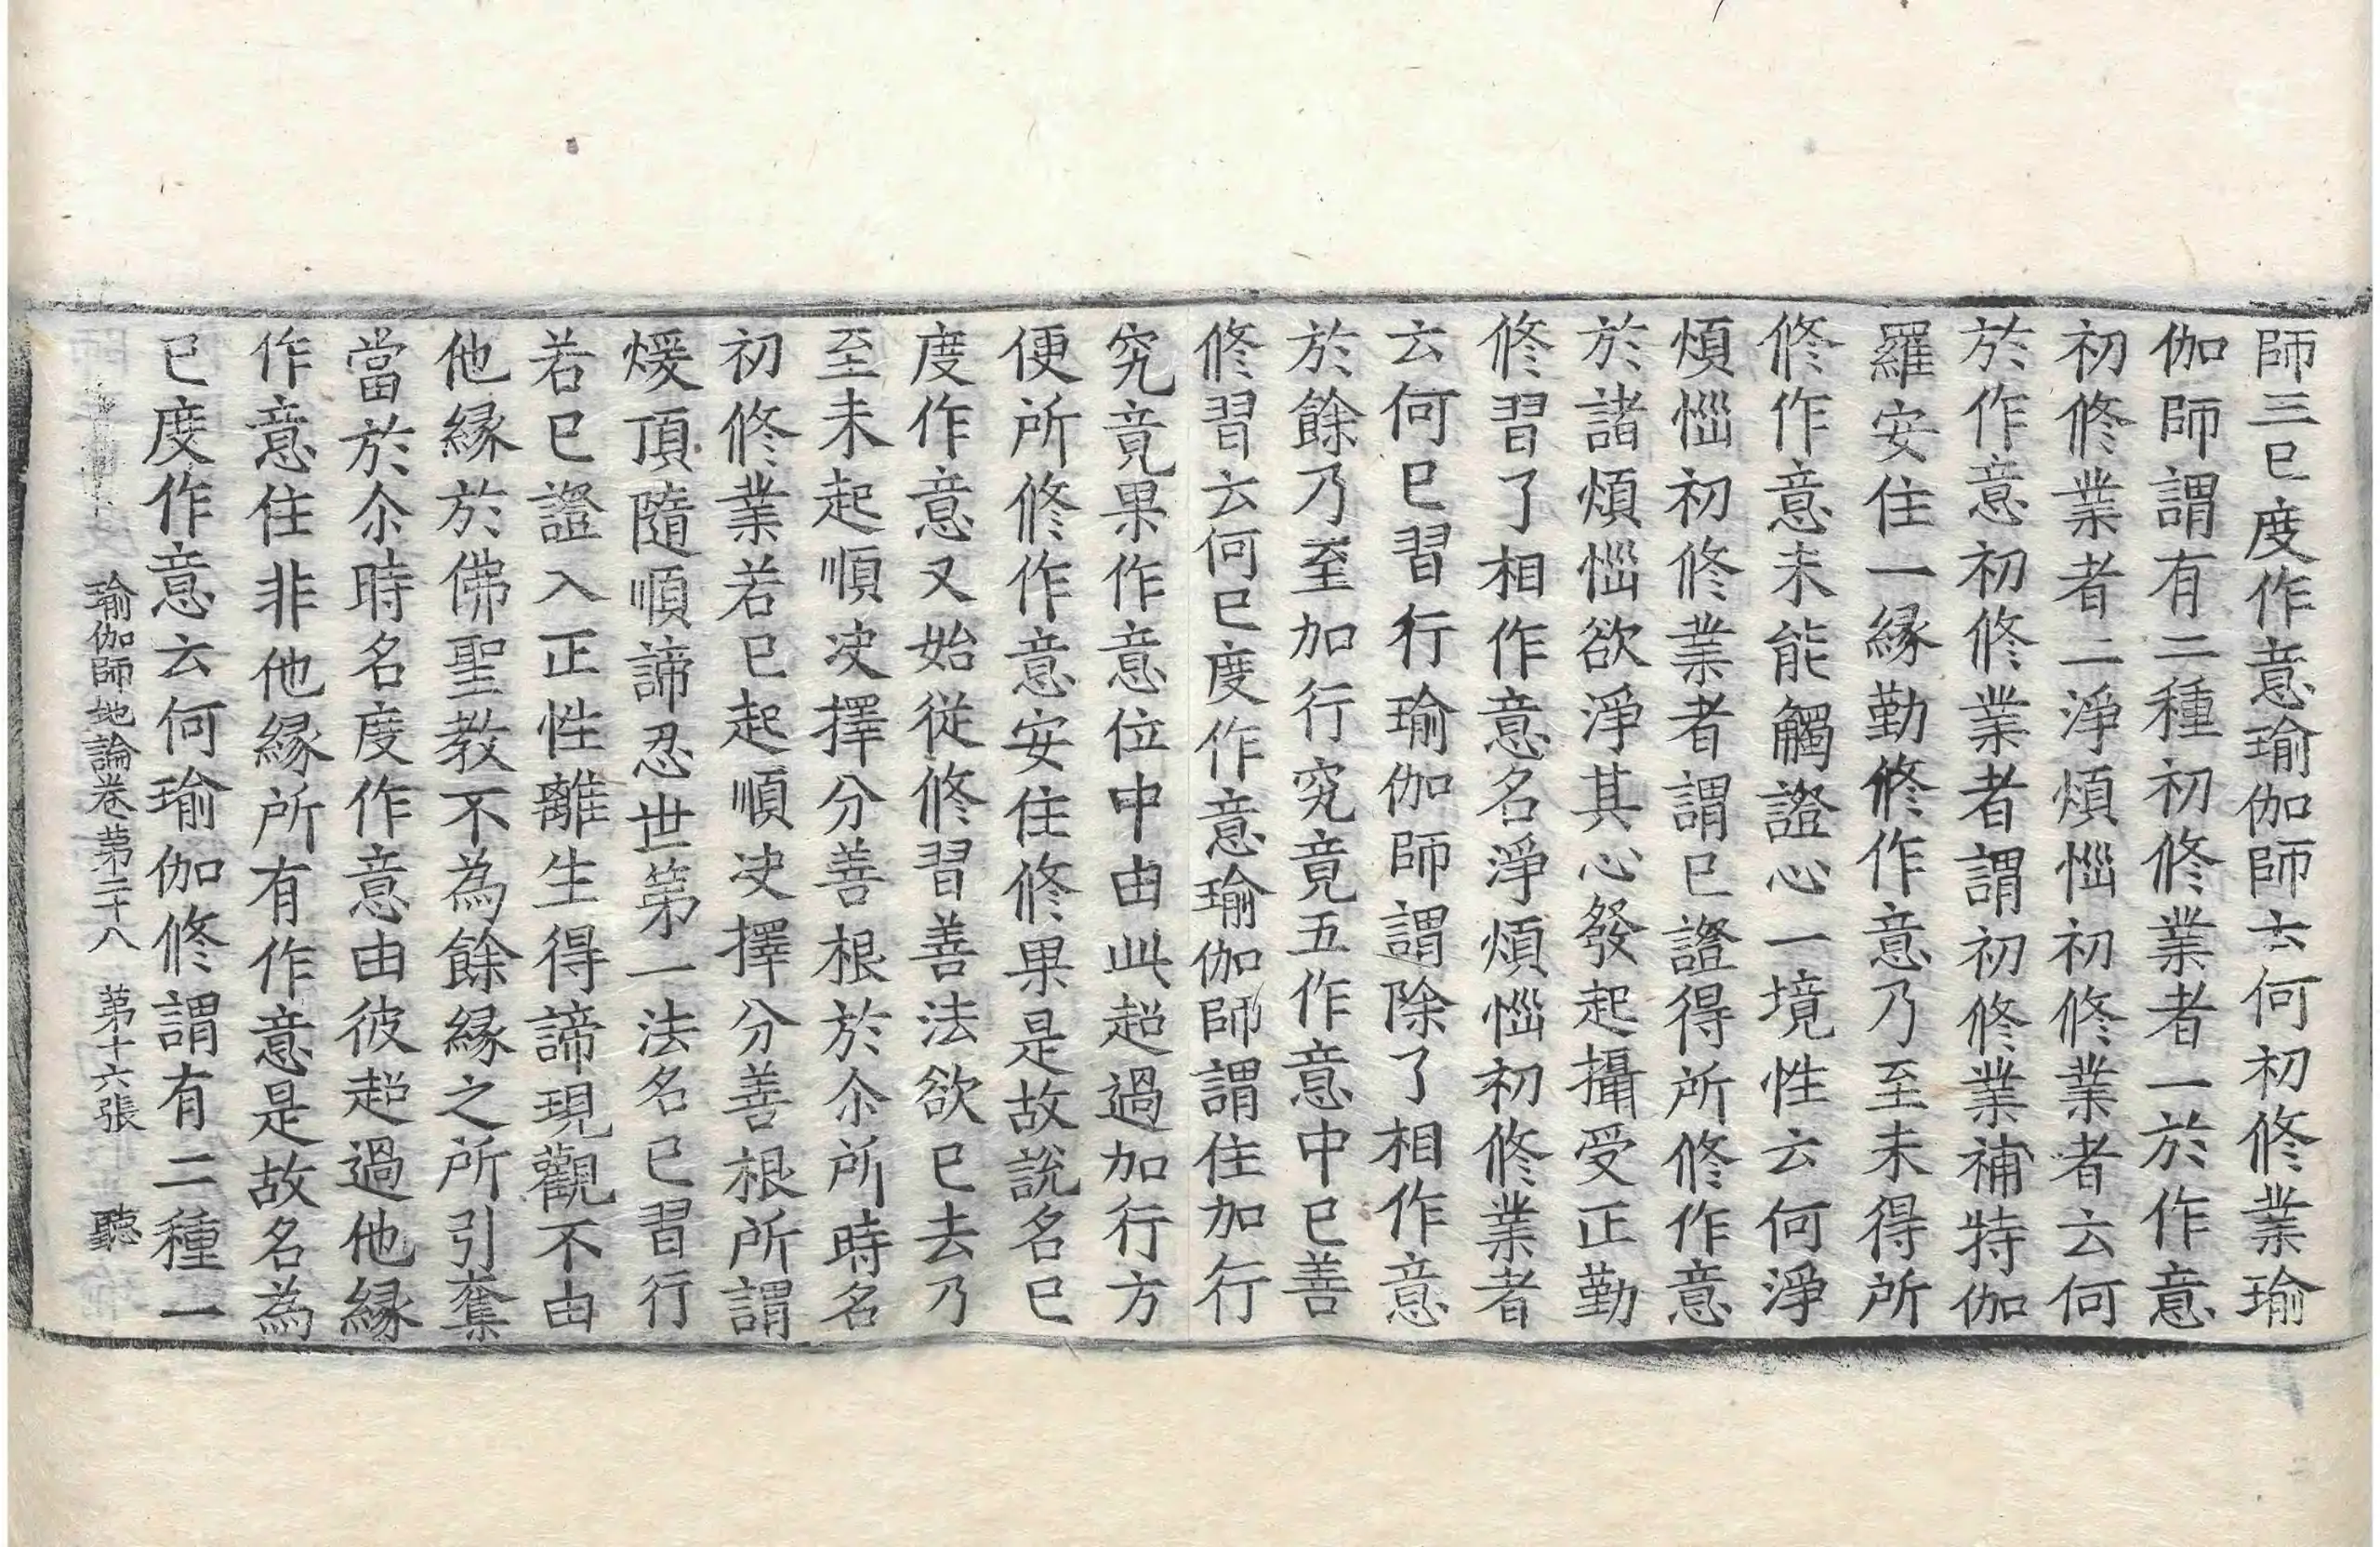 師三已度作意瑜伽師云何初修業瑜
伽師謂有二種初修業者一於作意
初修業者二淨煩惱初修業者云何
於作意初修業者謂初修業補特伽
羅安住一緣勤修作意乃至未得所
修作意未能觸證心一境性云何淨
煩惱初修業者謂已證得所修作意
於諸煩惱欲淨其心發起攝受正勤
修習了相作意名淨煩惱初修業者
云何已習行瑜伽師謂除了相作意
於餘乃至加行究竟五作意中已善
修習云何已度作意瑜伽師謂住加行
究竟果作意位中由此超過加行方
便所修作意安住修果是故說名已
度作意又始從修習善法欲已去乃
至未起順决擇分善根於尒所時名
初修業若已起順决擇分善根所謂
煖頂隨順諦忍世第一法名已習行
若已證入正性離生得諦現觀不由
他緣於佛聖教不為餘緣之所引奪
當於尒時名度作意由彼超過他緣
作意住非他緣所有作意是故名為
已度作意云何瑜伽修謂有二種一
瑜伽師地論卷第二十八 第十六張 聽